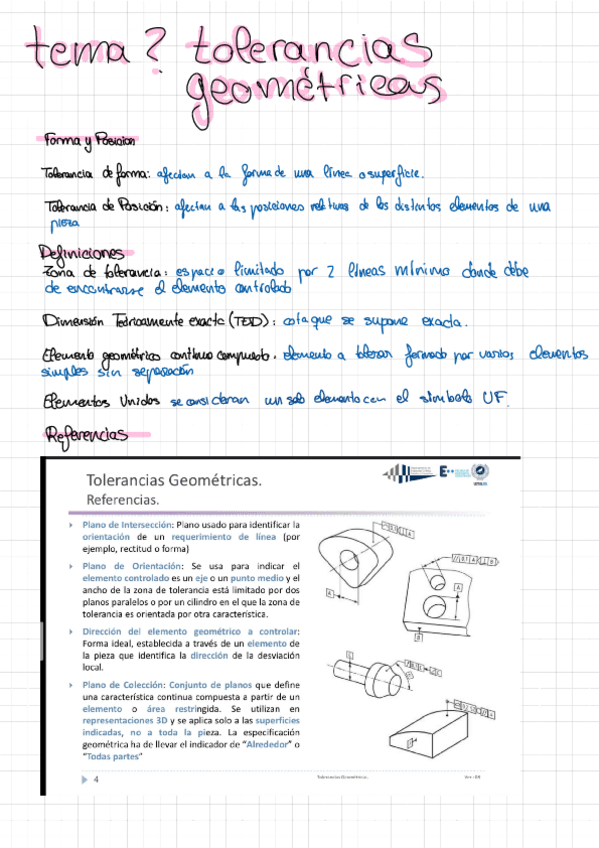 tema ? tolerancias
geométricas
Forma y Posicion
Tolerancia de forma: afectan a la forma de una línea o superficie.
Tolerancia de Posición: afectan a las posiciones relativas de los distintos elementos de una
pieza
Definiciones
Zona de tolerancia: espacio limitado por 2 líneas mínimo donde debe
de encontrarse el elemento controlado
Dimensión Teóricamente exacta (TED): cota que se supone exacta.
Elemento geométrico continuo compuesto. elemento a tolerar formado por varios elementos
simples sin separación
Elementos Unidos se consideran un solo elemento con el simbolo UF.
Referencias
Tolerancias Geométricas.
Referencias.
Plano de Intersección: Plano usado para identificar la
orientación de un requerimiento de línea (por
ejemplo, rectitud o forma)
Plano de Orientación: Se usa para indicar el
elemento controlado es un eje o un punto medio y el
ancho de la zona de tolerancia está limitado por dos
planos paralelos o por un cilindro en el que la zona de
tolerancia es orientada por otra característica.
Dirección del elemento geométrico a controlar:
Forma ideal, establecida a través de un elemento de
la pieza que identifica la dirección de la desviación
local.
Plano de Colección: Conjunto de planos que define
una característica continua compuesta a partir de un
elemento o área restringida. Se utilizan en
representaciones 3D y se aplica solo a las superficies
indicadas, no a toda la pieza. La especificación
geométrica ha de llevar el indicador de “Alrededor” o
“Todas partes”
4
Tolerancias Geométricas.